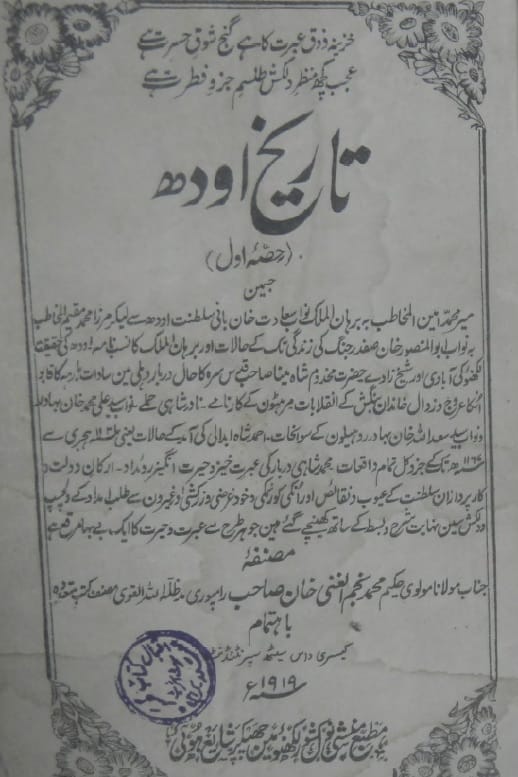 خزینہ ذوق عبرت کا ہے گنج شوق حسرت ہے
عجب کچھ منظر دلکش طلسم جزو فطرت ہے
تاریخ اودھ
(حصۂ اول)
جسمین
میر محمد امین المخاطب بہ برہان الملک نواب سعادت خان بانی سلطنت اودھ سے لیکر مرزا محمد مقیم المخاطب
بہ نواب ابو المنصور خان صفدر جنگ کی زندگی تک کے حالات اور برہان الملک کا نسب نامہ۔ اودھ کی حقیقت
لکھنؤ کی آبادی اور شیخ زادے حضرت مخدوم شاہ مینا صاحب قدس سرہ کا حال دربار دہلی مین سادات بارہہ کا قابو
انکا عروج و زوال خاندان بنگش کے انقلابات مرہٹون کے کارنامے۔ نادر شاہی حملے۔ نواب سید علی محمد خان بہادر
و نواب سید سعد اللہ خان بہادر و روہیلون کے سوانحات۔ احمد شاہ ابدالی کی آمد کے حالات یعنی ہجری سے
۱۱۶۷ھ تک کے جزو کل تمام واقعات۔ محمد شاہی دربار کی عبرت خیز و حیرت انگیز روداد۔ ارکان دولت و
کارپردازان سلطنت کے عیوب و نقائص اور انکی کورنمکی و خود غرضی و زرکشی اور غیرون سے طلب امداد کے دلچسپ
و دلکش سین نہایت شرح و بسط کے ساتھ کھینچے گئے ہین جو ہر طرح سے عبرت و حیرت کا ایک بے بہا مرقع ہے
مصنفۂ
جناب مولانا مولوی حکیم محمد نجم الغنی خان صاحب رامپوری مدظلہ اللہ القوی مصنف کتب متعددہ
باہتمام
کیسری داس سیٹھ سپرنٹنڈنٹ
۱۹۱۹ء
مطبع منشی نولکشور لکھنؤ مین چھپکر شایع ہوئی